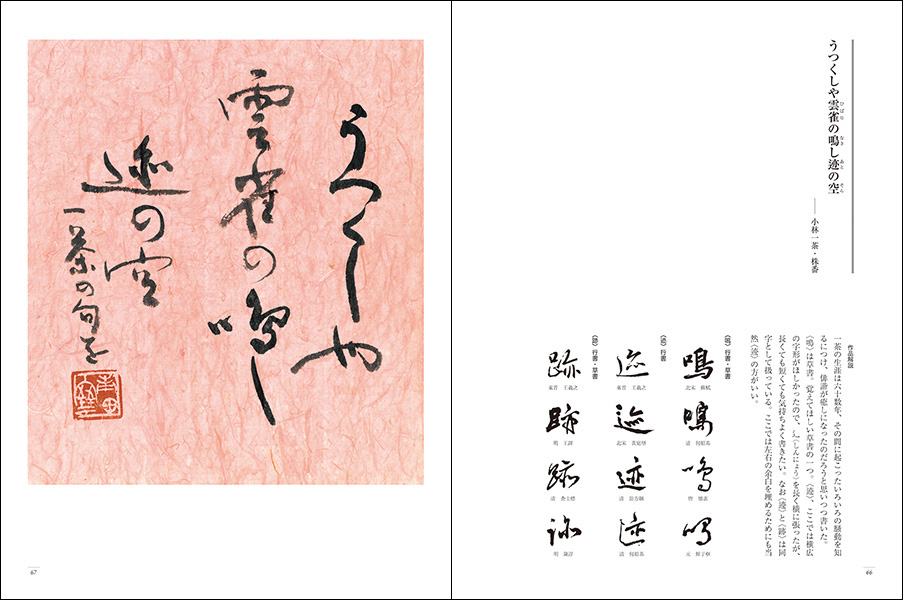 うつくしや雲雀の鳴し迹の空
ひばり なき あと そら
―― 小林一茶・株番
作品解説
一茶の生涯は六十数年、その間に起こったいろいろの騒動を知
るにつけ、俳諧が癒しになったのだろうと思いつつ書いた。
〈鳴〉は草書。覚えてほしい草書の一つ。〈迹〉、ここでは横広
の字形がほしかったので、辶（しんにょう）を長く横に張ったが、
長くても短くても気持ちよく書きたい。なお〈迹〉と〈跡〉は同
字として扱っている。ここでは左右の余白を埋めるためにも当
然〈迹〉の方がいい。
〈鳴〉行書・草書
鳴
北宋 蘇軾
鳴
清 何紹基
鳴
唐 懐素
鳴
元 鮮于枢
〈迹〉行書・草書
迹
東晋 王羲之
迹
北宋 黄庭堅
迹
清 翁方綱
迹
清 何紹基
〈跡〉行書・草書
跡
東晋 王羲之
跡
明 王鐸
跡
清 査士標
跡
明 陳淳
66
うつくしや
雲雀の鳴し
迹の空
一茶の句を
67